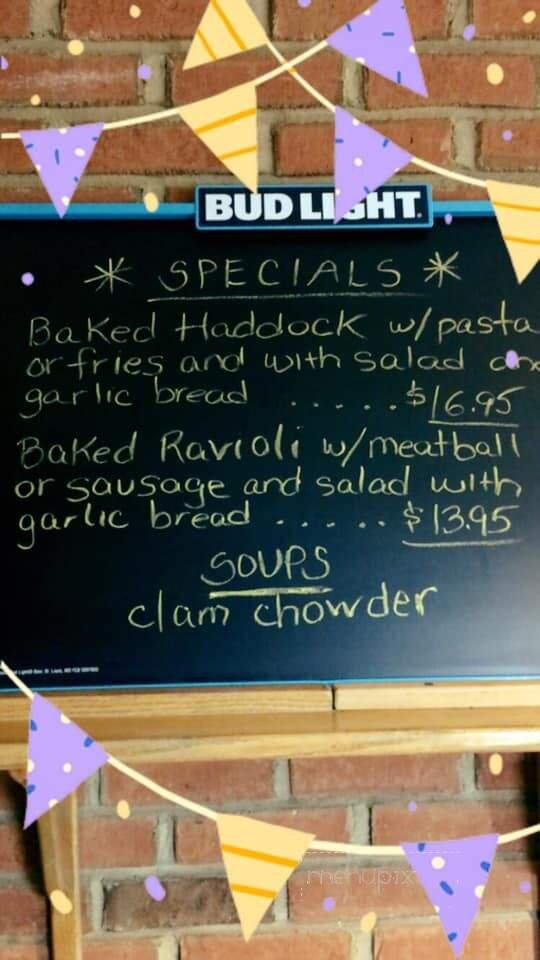 BUD LIGHT
* SPECIALS *
Baked Haddock w/pasta
or fries and with salad and
garlic bread . . . . . $16.95
Baked Ravioli w/meatball
or sausage and salad with
garlic bread . . . . . . $13.95
SOUPS
clam chowder
menupix